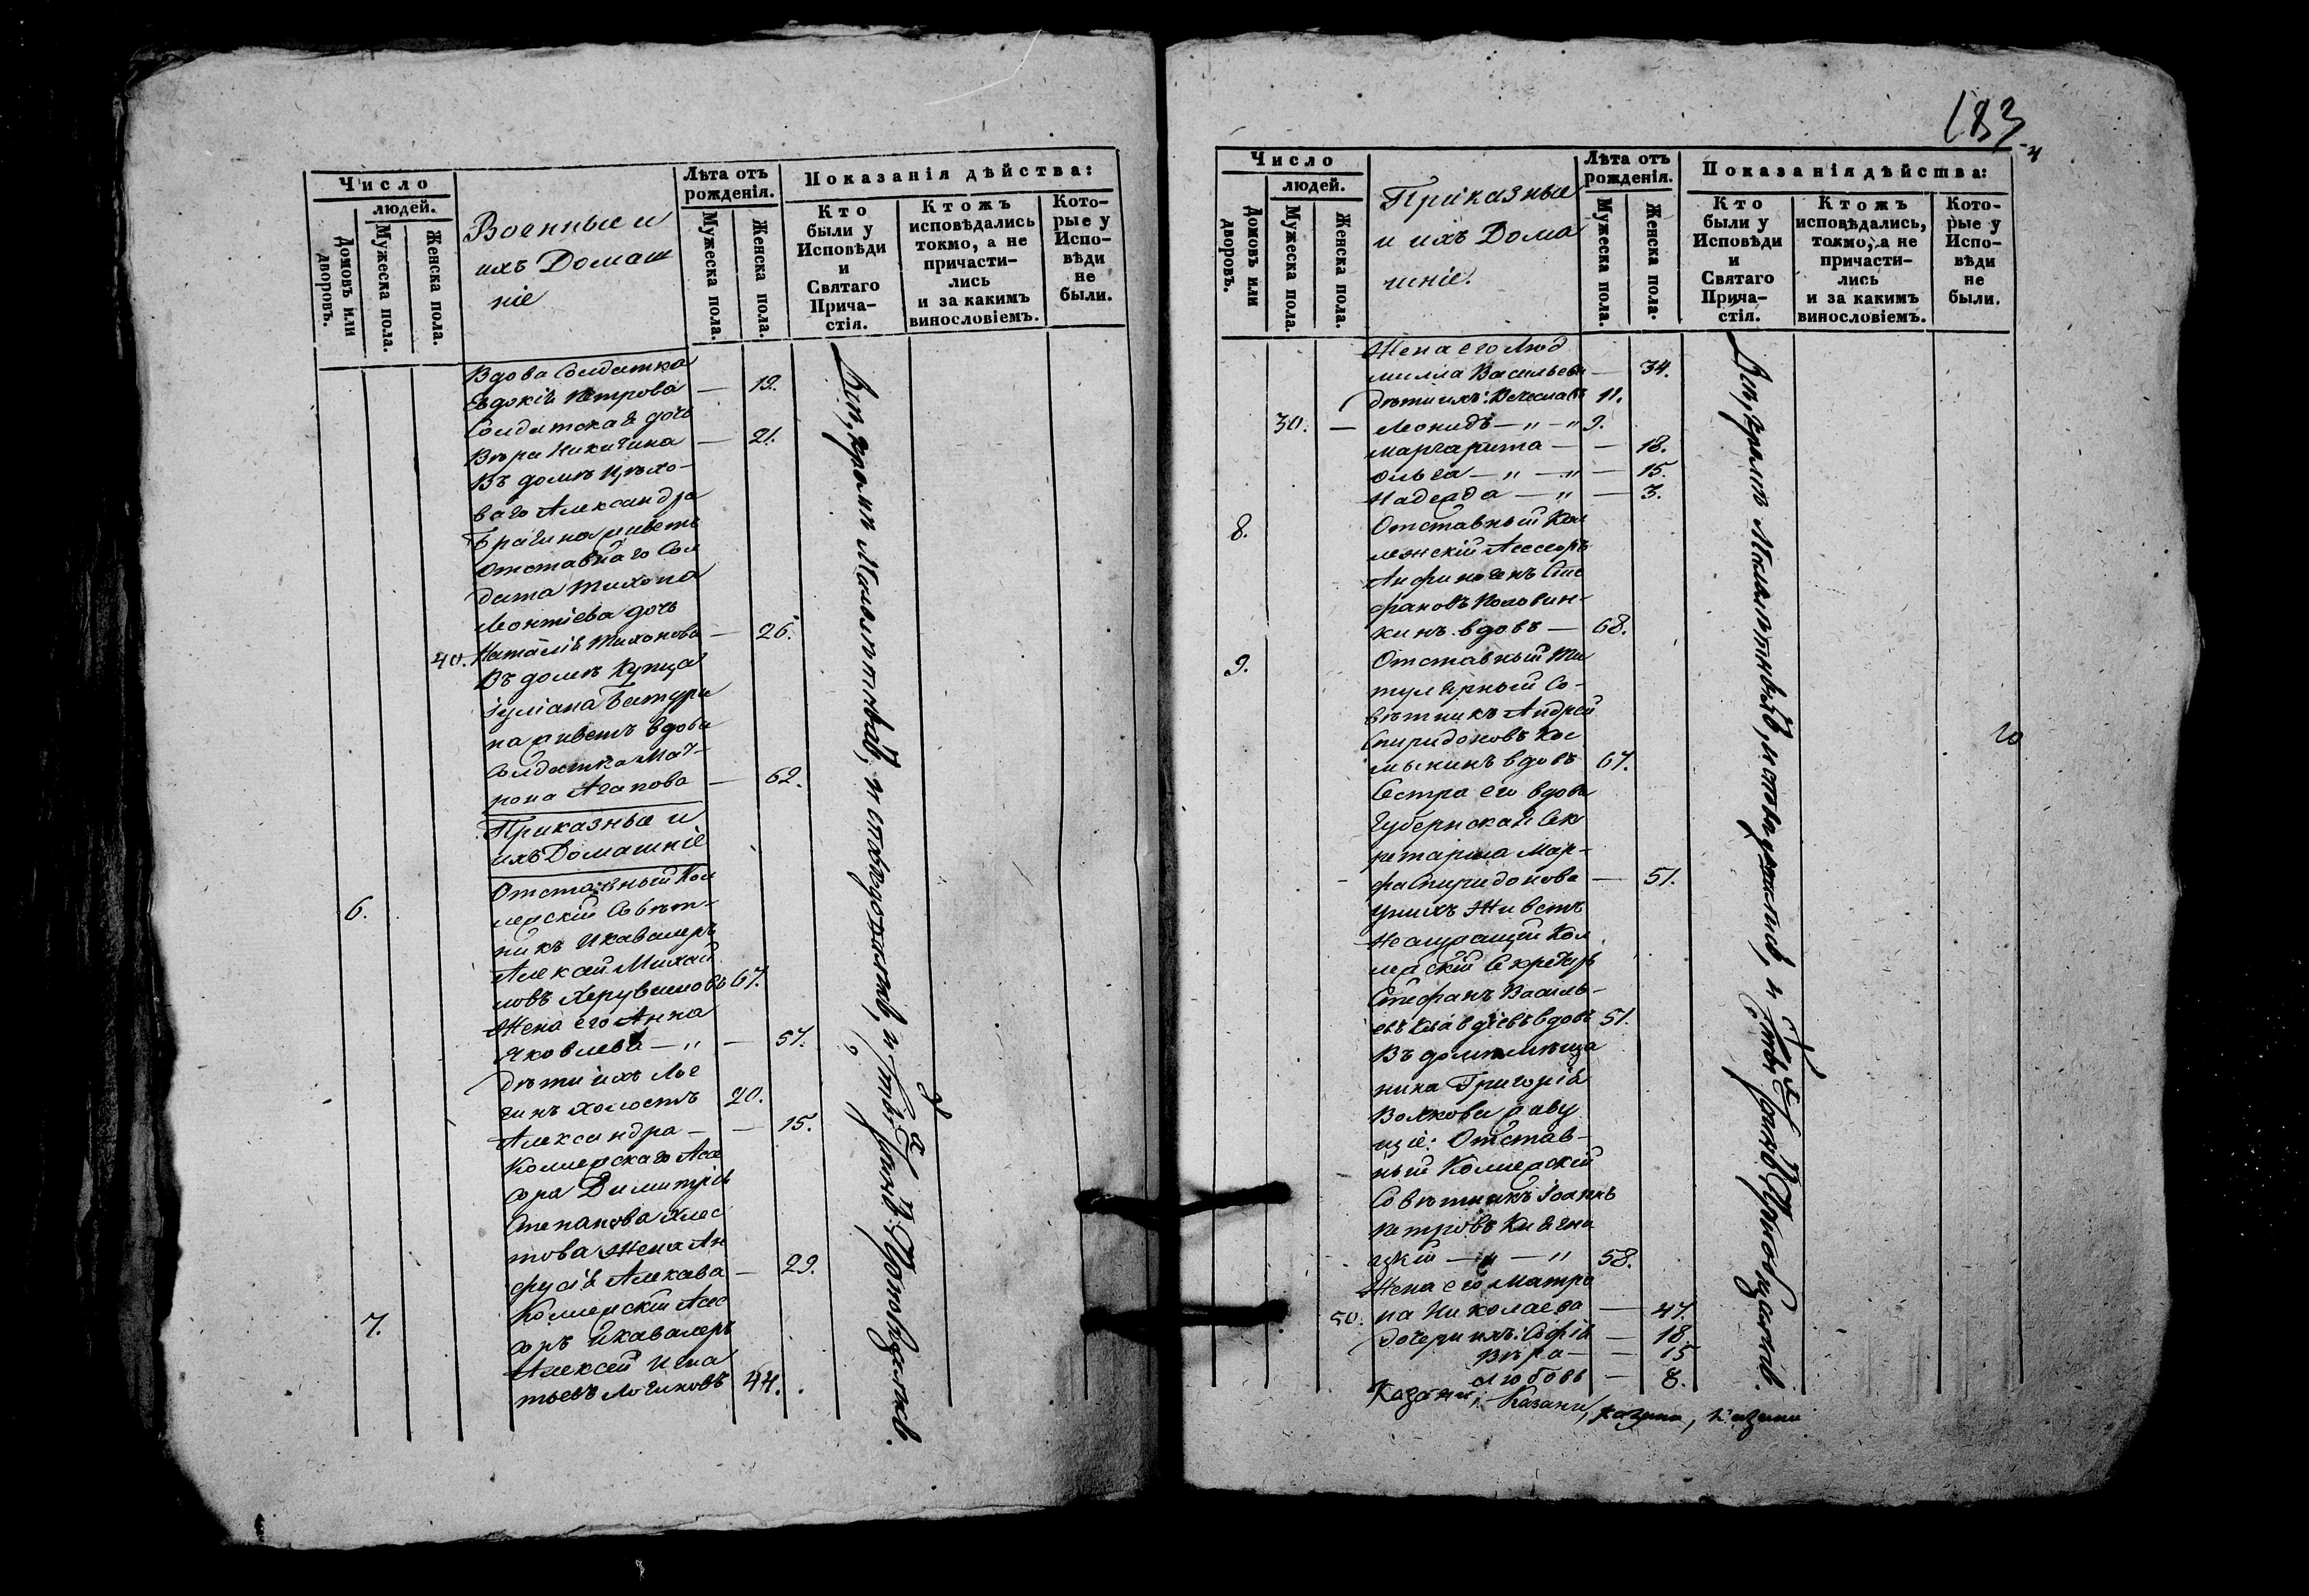 Число
людей.
Домовъ или дворовъ.
Мужеска пола.
Женска пола.
Военные и
ихъ Домаш
ніе
Лѣта отъ
рожденія.
Мужеска пола.
Женска пола.
Показанія дѣйства:
Кто
были у
Исповѣди
и
Святаго
Прича-
стія.
Ктожъ
исповѣдались
токмо, а не
причасти-
лись
и за какимъ
винословіемъ.
Кото-
рые у
Испо-
вѣди
не
были.
Вдова Солдатка
Евдокія Петрова — 19.
Солдатская дочь
Вѣра Никитина — 21.
Въ домѣ Цѣхо-
ваго Александра
Брагина живетъ
Отставнаго Сол
дата Тихона
Леонтіева дочь
40. Наталія Тихонова — 26.
Въ домѣ Купца
Іуліана Батури
на живетъ вдова
Солдатка Мат-
рона Агапова — 62.
Приказные и
ихъ Домашніе
6. Отставный Кол
лежскій Совѣт-
никъ и кавалеръ
Алексей Михай
ловъ Херувимовъ 67.
Жена его Анна
Яковлева — " — 57.
Дѣти ихъ Ло
гинъ холостъ 20.
Александра — — 15.
Коллежскаго Асе
сора Димитрія
Степанова
това Жена Ан
фуса — 29.
7. Коллежскій Асес
оръ и кавалеръ
Алексей Игна
тьевъ Логиновъ 44.
Всѣ, кромѣ Малолѣтнѣй, исповѣдались и Св. Таинъ Приобщались.
183
Число
людей.
Домовъ или дворовъ.
Мужеска пола.
Женска пола.
Приказные
и ихъ Дома
шніе.
Лѣта отъ
рожденія.
Мужеска пола.
Женска пола.
Показанія дѣйства:
Кто
были у
Исповѣди
и
Святаго
Прича-
стія.
Ктожъ
исповѣдались,
токмо, а не
причасти-
лись
и за какимъ
винословіемъ.
Кото-
рые у
Испо-
вѣди
не
были.
Жена его Люд
милла Васильева — 34.
Дѣти ихъ: Вечеславъ 11.
30. — Леонидъ — " — " 9.
Маргарита — — 18.
Ольга — " — " — 15.
Надежда — " — 3.
8. Отставный Кол
лежскій Асессоръ
Анфиногенъ Сте
фановъ Половин-
кинъ вдовъ — 68.
9. Отставный Ти
тулярный Со-
вѣтникъ Андрей
Спиридоновъ Кол
мыкинъ вдовъ 67.
Сестра его вдова
Губернская Сек
ретарша Мар-
фа Спиридонова — 51.
У нихъ Живетъ
Неслужащій Кол
лежскій Секретарь
Стефанъ Василь-
евъ Клавдіевъ вдовъ 51.
Въ домѣ мѣща
нина Григорія
Волкова живу
щіе: Отстав-
ный Коллежскій
Совѣтникъ Іоаннъ
Петровъ Княги
цкій — " — " 58.
Жена его Матро
50. на Николаева — 47.
Дочери ихъ: Софія — 18.
Вѣра — — 15
Любовь — 8.
Казани, Казани, Казани, Казани